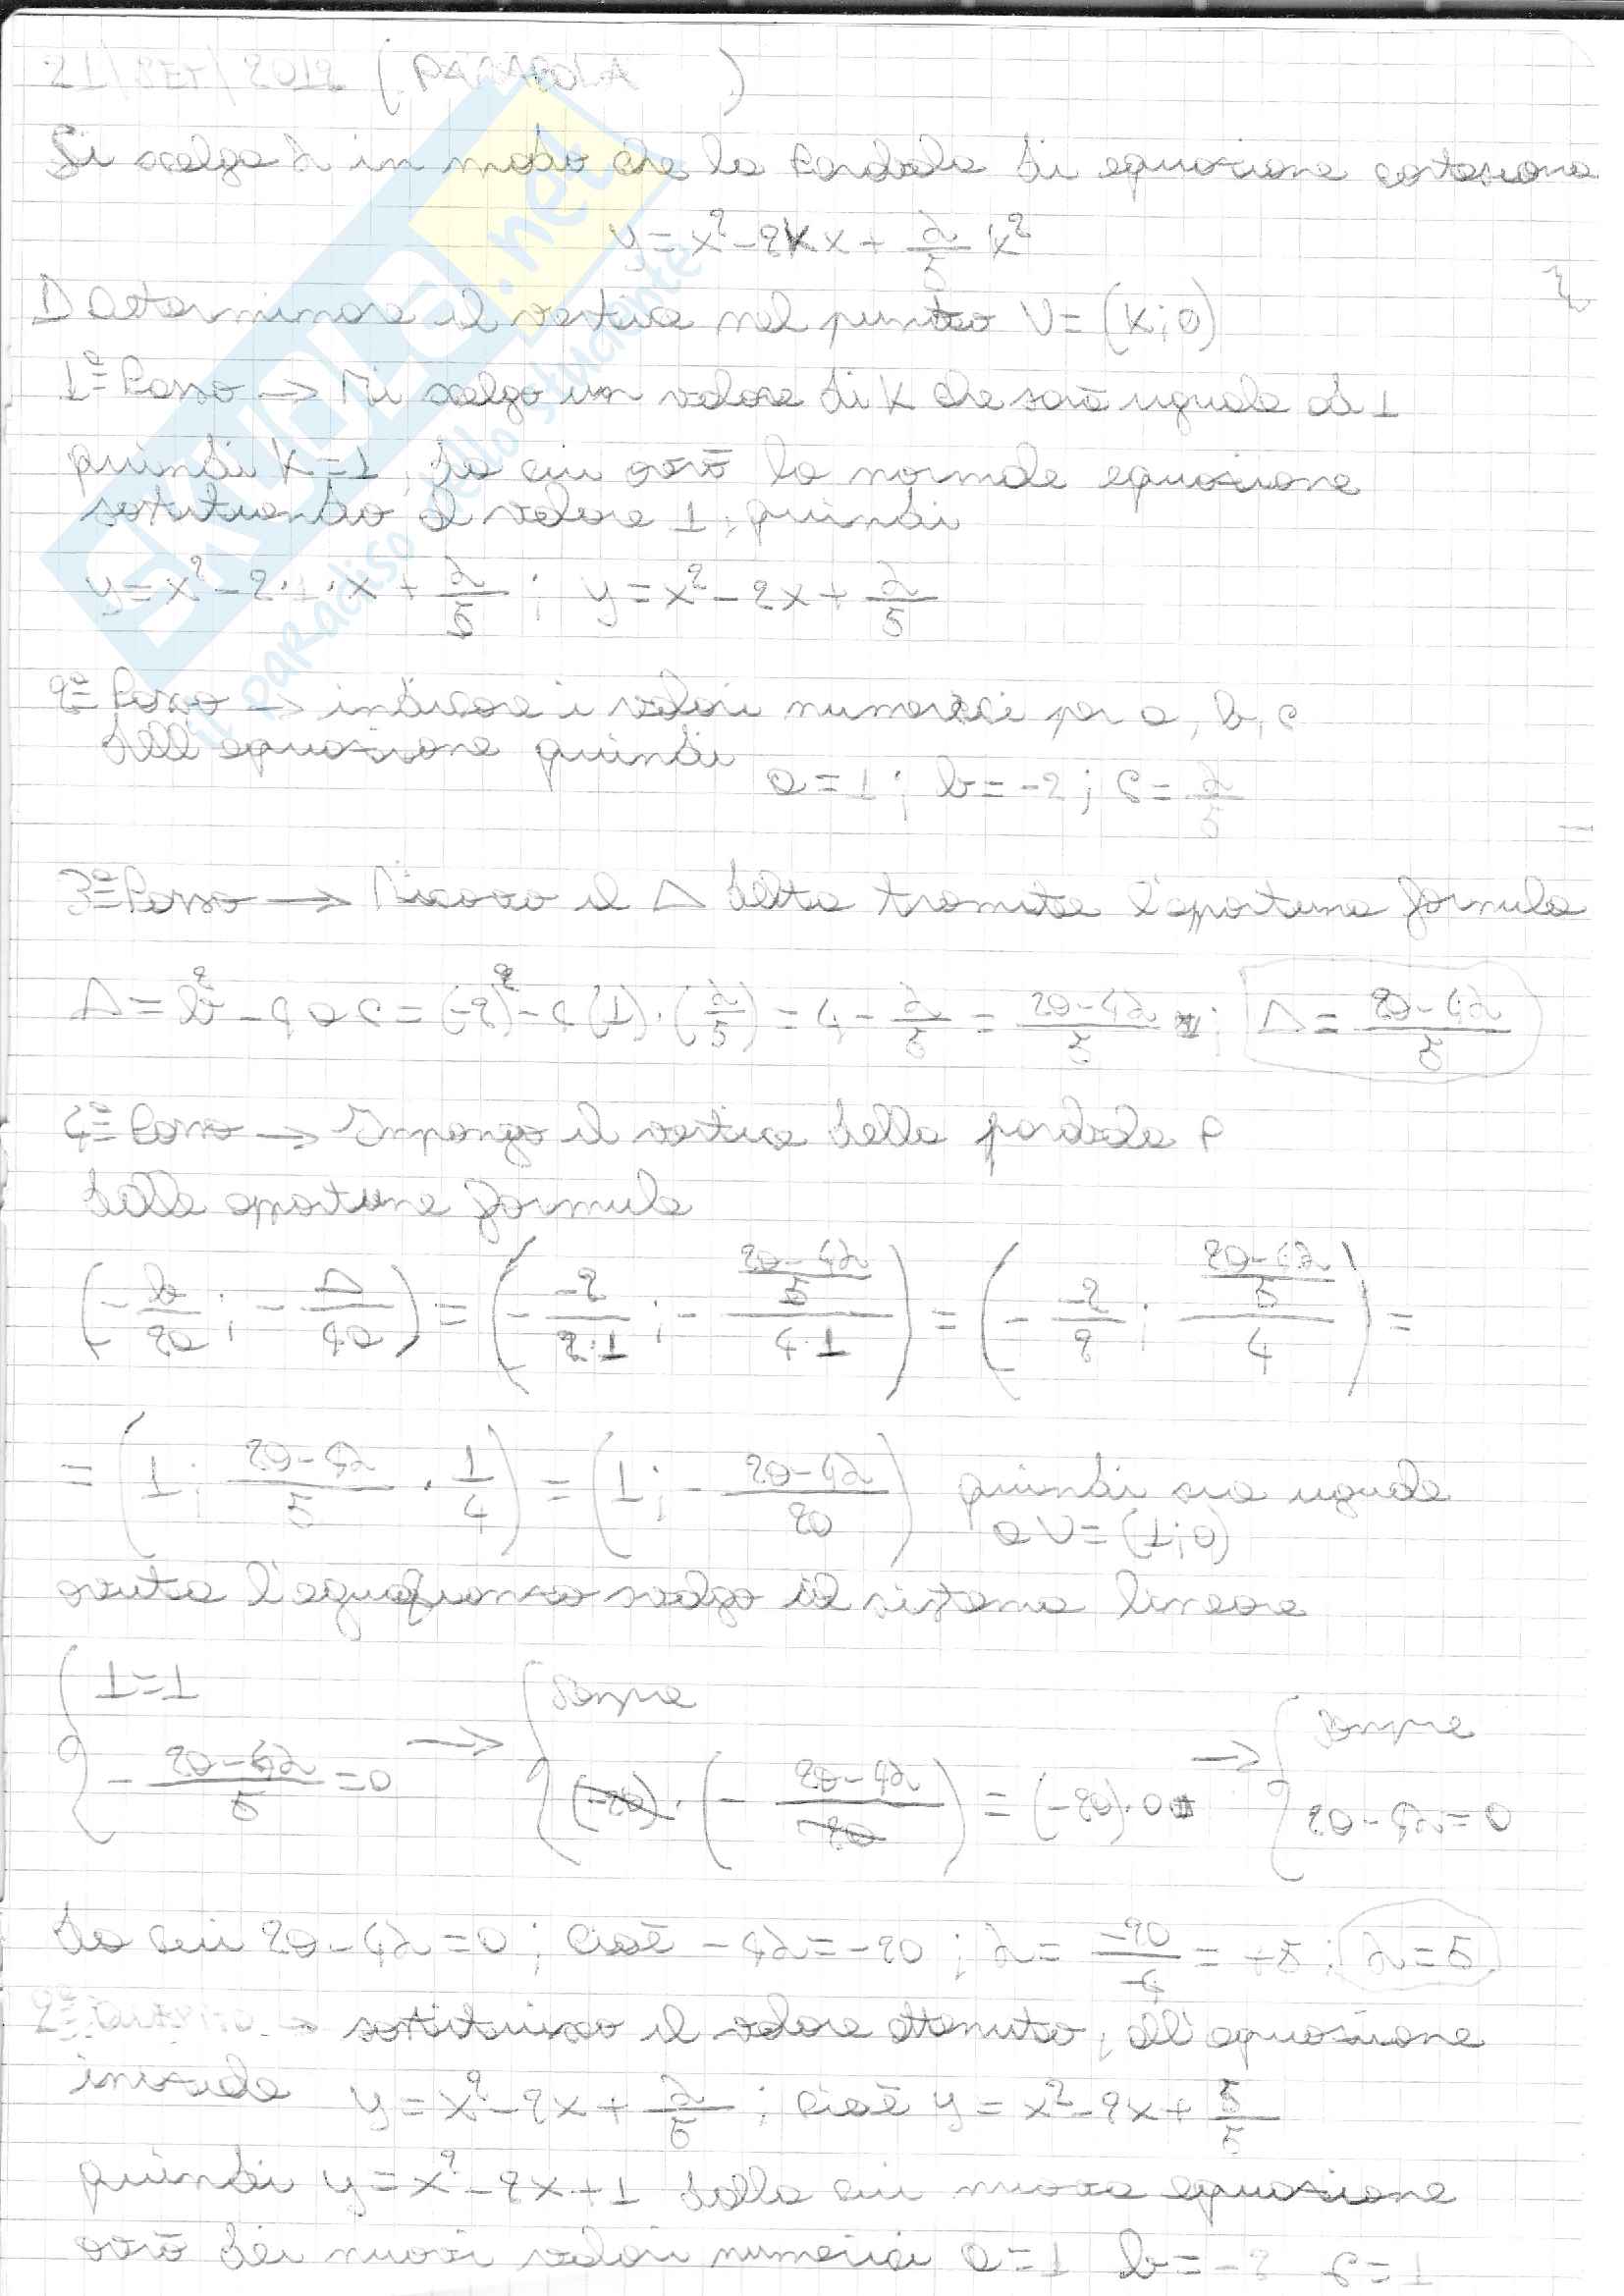 21/SET/2012 (PARABOLA)
Si scelga λ in modo che la Parabola di equazione cartesiana
y = x² - 2kx + λ/5 k²
1) Determinare il vertice nel punto V = (K; 0)
1º Passo → Mi scelgo un valore di K che sarà uguale ad 1
quindi K = 1, da cui avrò la normale equazione
sostituendo il valore 1, quindi
y = x² - 2·1·x + λ/5 ; y = x² - 2x + λ/5
2º Passo → indicare i valori numerici per a, b, c
dell'equazione quindi
a = 1 ; b = -2 ; c = λ/5
3º Passo → Ricavo il Δ delta tramite l'opportuna formula
Δ = b² - 4ac = (-2)² - 4(1)·(λ/5) = 4 - λ/5 = (20-4λ)/5 ; Δ = (20-4λ)/5
4º Passo → Impongo il vertice della parabola P
dalle opportune formule
(-b/2a ; -Δ/4a) = (- -2/2·1 ; - (20-4λ)/5/4·1) = (- -2/2 ; (20-4λ)/5/4) =
= (1 ; (20-4λ)/5 · 1/4) = (1 ; - (20-4λ)/20) quindi sia uguale
a V = (1; 0)
svolgo il sistema lineare
{ 1=1 ; - (20-4λ)/5 = 0 → { Sempre ; (-20)·(- (20-4λ)/20) = (-20)·0 → { Sempre ; 20-4λ = 0
da cui 20-4λ = 0 ; cioè -4λ = -20 ; λ = -20/-4 = +5 ; λ = 5
2º → sostituisco il valore ottenuto, all'equazione
iniziale y = x² - 2x + λ/5 ; cioè y = x² - 2x + 5/5
quindi y = x² - 2x + 1 dalla cui nuova equazione
avrò dei nuovi valori numerici a = 1 b = -2 c = 1
SKUOLA.net
il paradiso dello studente